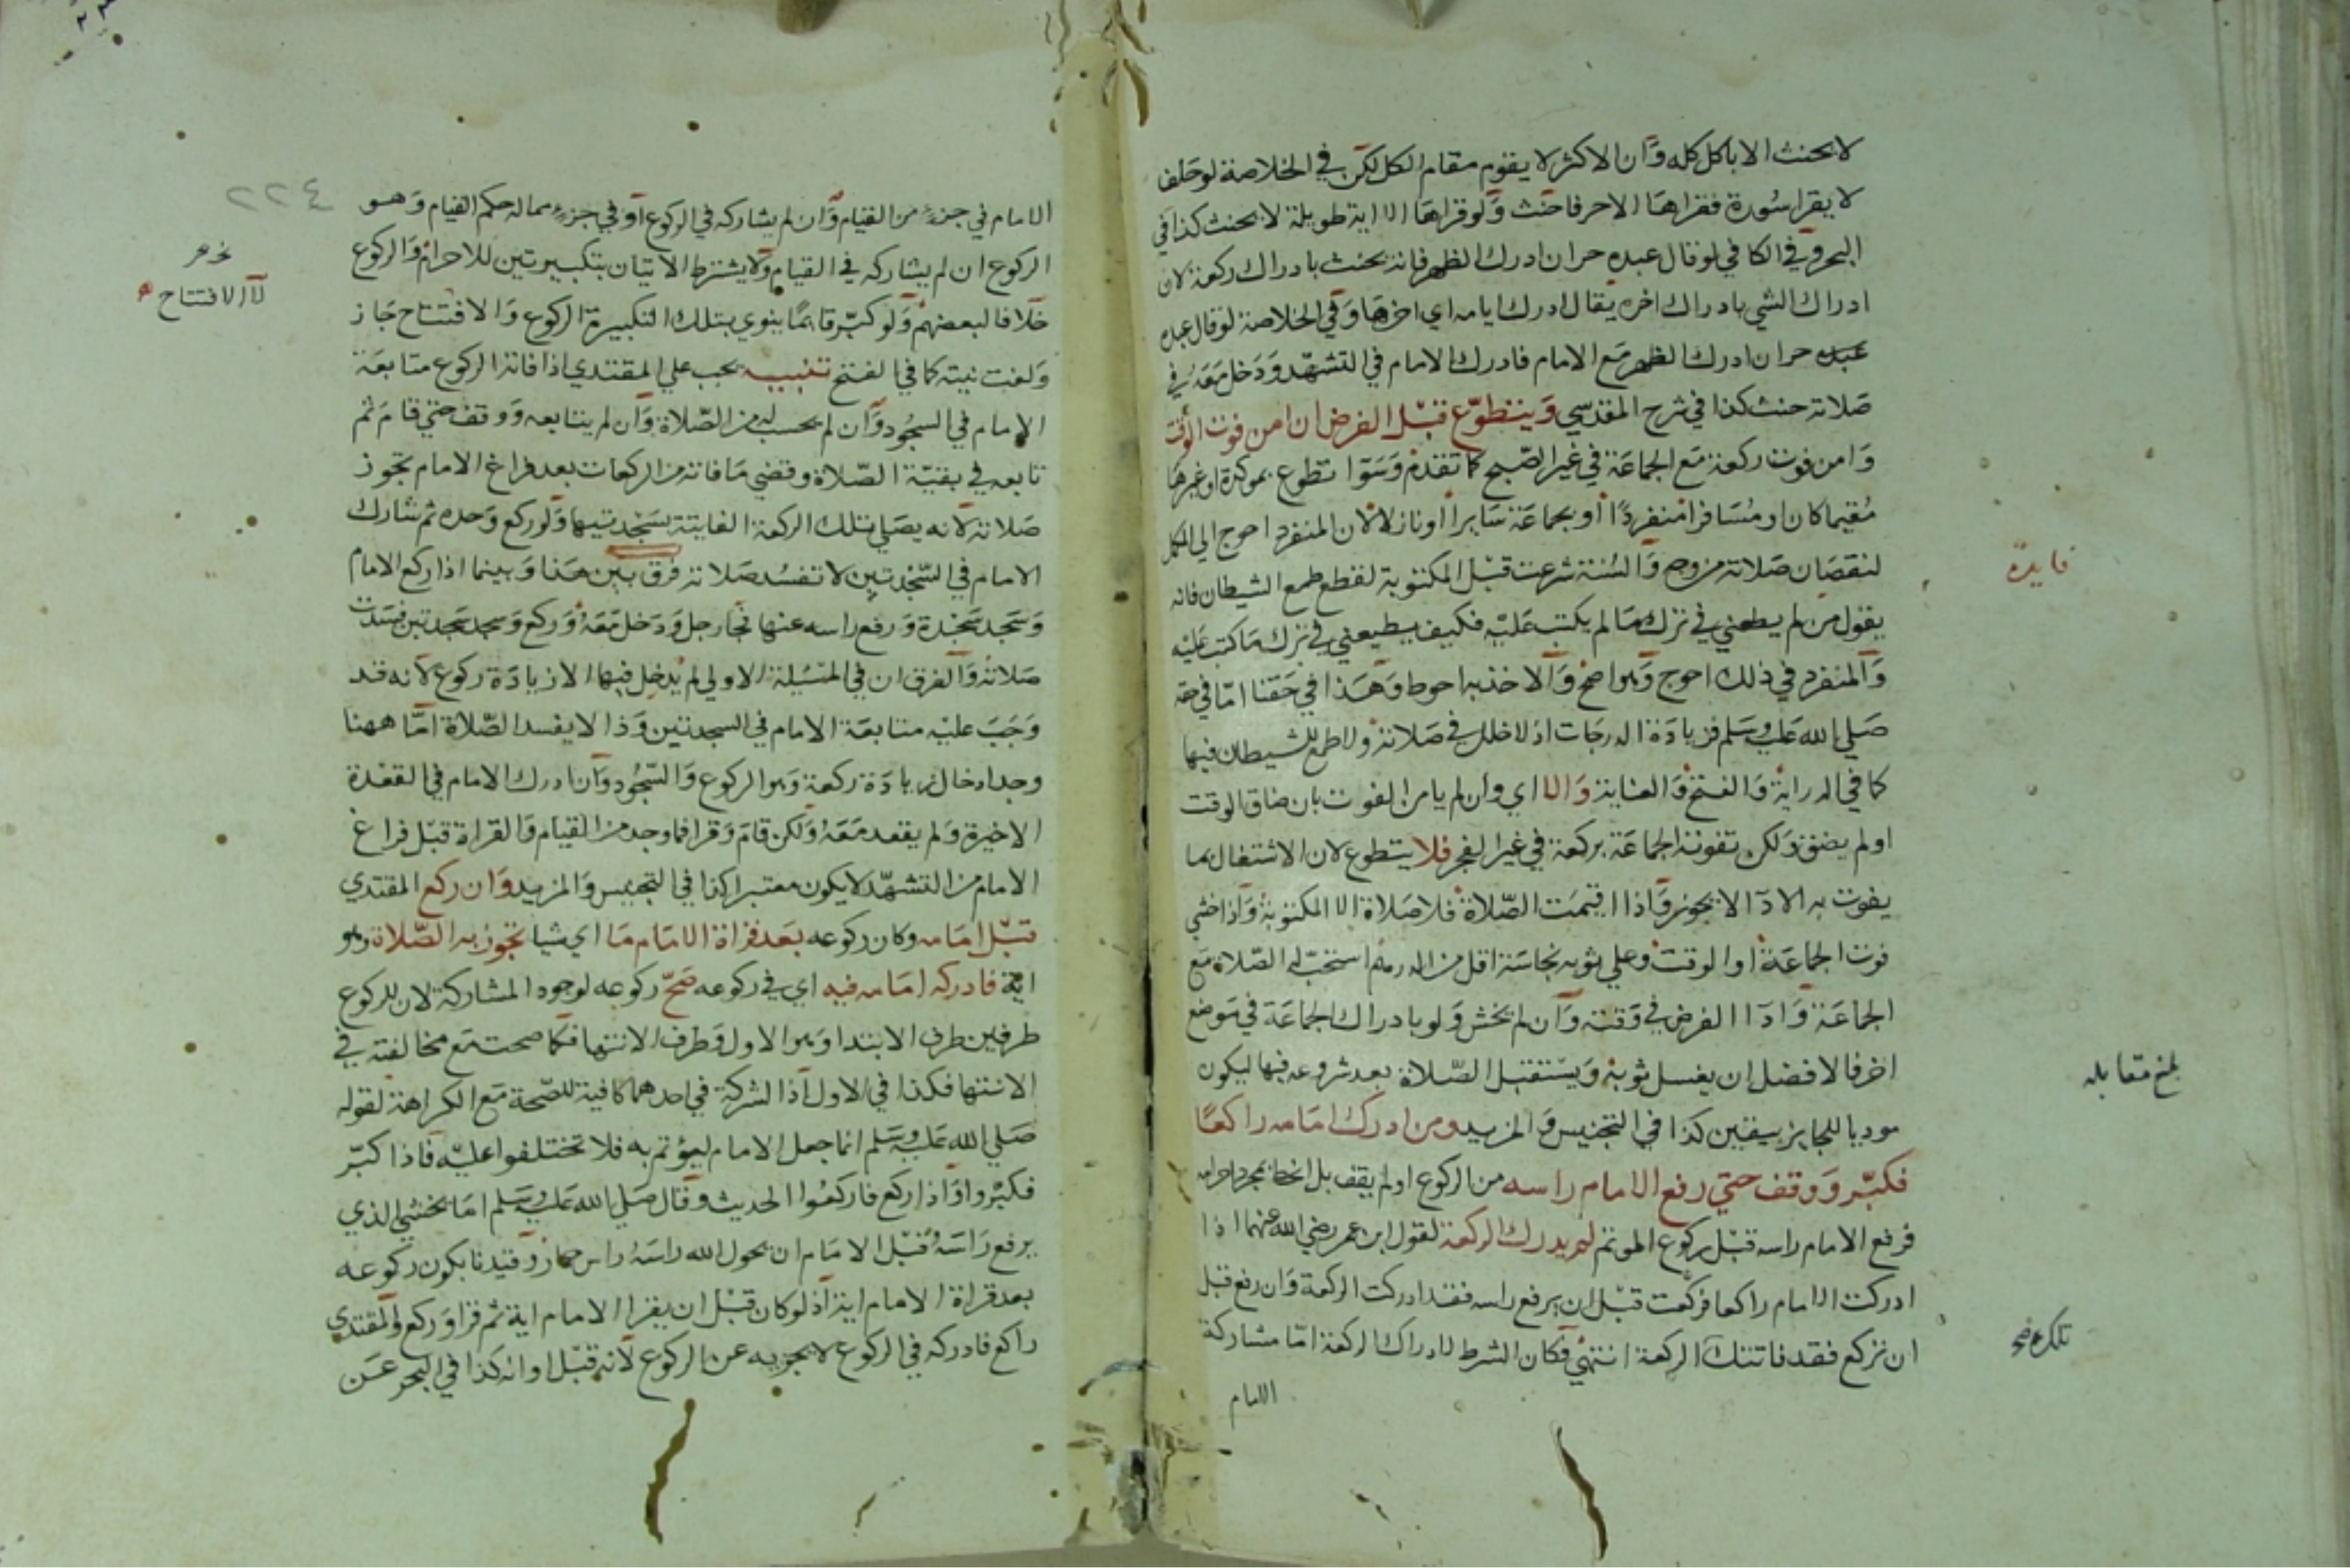 لا يحنث الا باكل كله وان الاكثر لا يقوم مقام الكل لكن في الخلاصة لو حلف
لا يقرا سورة فقراها الا حرفا حنث ولو قراها الا اية طويلة لا يحنث كذا في
البحر وفي الكافي لو قال عبده حر ان ادرك الظهر فانه يحنث بادراك ركعة لان
ادراك الشي بادراك اخره يقال ادرك ايامه اي اخرها وفي الخلاصة لو قال عبده
عبده حر ان ادرك الظهر مع الامام فادرك الامام في التشهد ودخل معه في
صلاته حنث كذا في شرح المقدسي ويتطوع قبل الفرض ان امن فوت الوقت
وامن فوت ركعة مع الجماعة في غير الصبح كما تقدم وسوا تطوع بموكدة او غيرها
مقيما كان او مسافرا منفردا او بجماعة سايرا او نازلا لان المنفرد احوج الي المكمل
لنقصان صلاته من وجه والسنة شرعت قبل المكتوبة لقطع طمع الشيطان فانه
يقول من لم يطعني في ترك ما لم يكتب عليه فكيف يطيعني في ترك ما كتب عليه
والمنفرد في ذلك احوج وهو اصح والاخذ به احوط وهذا في حقنا اما في حقه
صلي الله عليه وسلم فزيادة الدرجات اذ لا خلل في صلاته ولا طمع للشيطان فيها
كما في الدراية والفتح والعناية والا اي وان لم يامن الفوت بان ضاق الوقت
او لم يضق ولكن تفوته الجماعة بركعة في غير الفجر فلا يتطوع لان الاشتغال بما
يفوت به الادآ لا يجوز واذا اقيمت الصلاة فلا صلاة الا المكتوبة واذا خشي
فوت الجماعة او الوقت وعلي ثوبه نجاسة اقل من الدرهم استحب له الصلاة مع
الجماعة وادآ الفرض في وقته وان لم يخش ولو بادراك الجماعة في موضع
اخر فالافضل ان يغسل ثوبه ويستقبل الصلاة بعد شروعه فيها ليكون
موديا للجايز بيقين كذا في التجنيس والمزيد ومن ادرك امامه راكعا
فكبر ووقف حتي رفع الامام راسه من الركوع او لم يقف بل انحط بمجرد احرامه
فرفع الامام راسه قبل ركوع الموتم لم يدرك الركعة لقول ابن عمر رضي الله عنهما اذا
ادركت الامام راكعا فركعت قبل ان يرفع راسه فقد ادركت الركعة وان رفع قبل
ان تركع فقد فاتتك الركعة انتهي فكان الشرط لادراك الركعة اما مشاركة
الامام
فايدة
بلغ مقابله
٢٢٤
الامام في جزء من القيام وان لم يشاركه في الركوع او في جزء مما له حكم القيام وهو
الركوع ان لم يشاركه في القيام ولا يشترط الاتيان بتكبيرتين للاحرام والركوع
خلافا لبعضهم ولو كبر قائما ينوي بتلك التكبيرة الركوع والافتتاح جاز
ولغت نيته كما في الفتح تنبيه يجب علي المقتدي اذا فاته الركوع متابعة
الامام في السجود وان لم يحسب له من الصلاة وان لم يتابعه ووقف حتي قام ثم
تابعه في بقية الصلاة وقضي ما فاته من الركعات بعد فراغ الامام تجوز
صلاته لانه يصلي تلك الركعة الفايتة بسجدتيها ولو ركع وحده ثم شارك
الامام في السجدتين لا تفسد صلاته فرق بين هذا وبينما اذا ركع الامام
وسجد سجدة ورفع راسه عنها فجا رجل ودخل معه وركع وسجد سجدتين فسدت
صلاته والفرق ان في المسئلة الاولي لم يدخل فيها الا زيادة ركوع لانه قد
وجب عليه متابعة الامام في السجدتين وذا لا يفسد الصلاة اما ههنا
وجد ادخال زيادة ركعة وهو الركوع والسجود وان ادرك الامام في القعدة
الاخيرة ولم يقعد معه ولكن قام وقرا فما وجد من القيام والقراة قبل فراغ
الامام من التشهد لا يكون معتبرا كذا في التجنيس والمزيد وان ركع المقتدي
قبل امامه وكان ركوعه بعد قراة الامام ما اي شيا تجوز به الصلاة وهو
اية فادركه امامه فيه اي في ركوعه صح ركوعه لوجود المشاركة لان للركوع
طرفين طرف الابتدا وهو الاول وطرف الانتها فكما صحت مع مخالفته في
الانتها فكذا في الاول اذ الشركة في احدهما كافية للصحة مع الكراهة لقوله
صلي الله عليه وسلم انما جعل الامام ليؤتم به فلا تختلفوا عليه فاذا كبر
فكبروا واذا ركع فاركعوا الحديث وقال صلي الله عليه وسلم اما يخشي الذي
يرفع راسه قبل الامام ان يحول الله راسه راس حمار وقيدنا بكون ركوعه
بعد قراة الامام اية اذ لو كان قبل ان يقرا الامام اية ثم قرا وركع والمقتدي
راكع فادركه في الركوع لا يجزيه عن الركوع لانه قبل اوانه كذا في البحر عن
لا الافتتاح